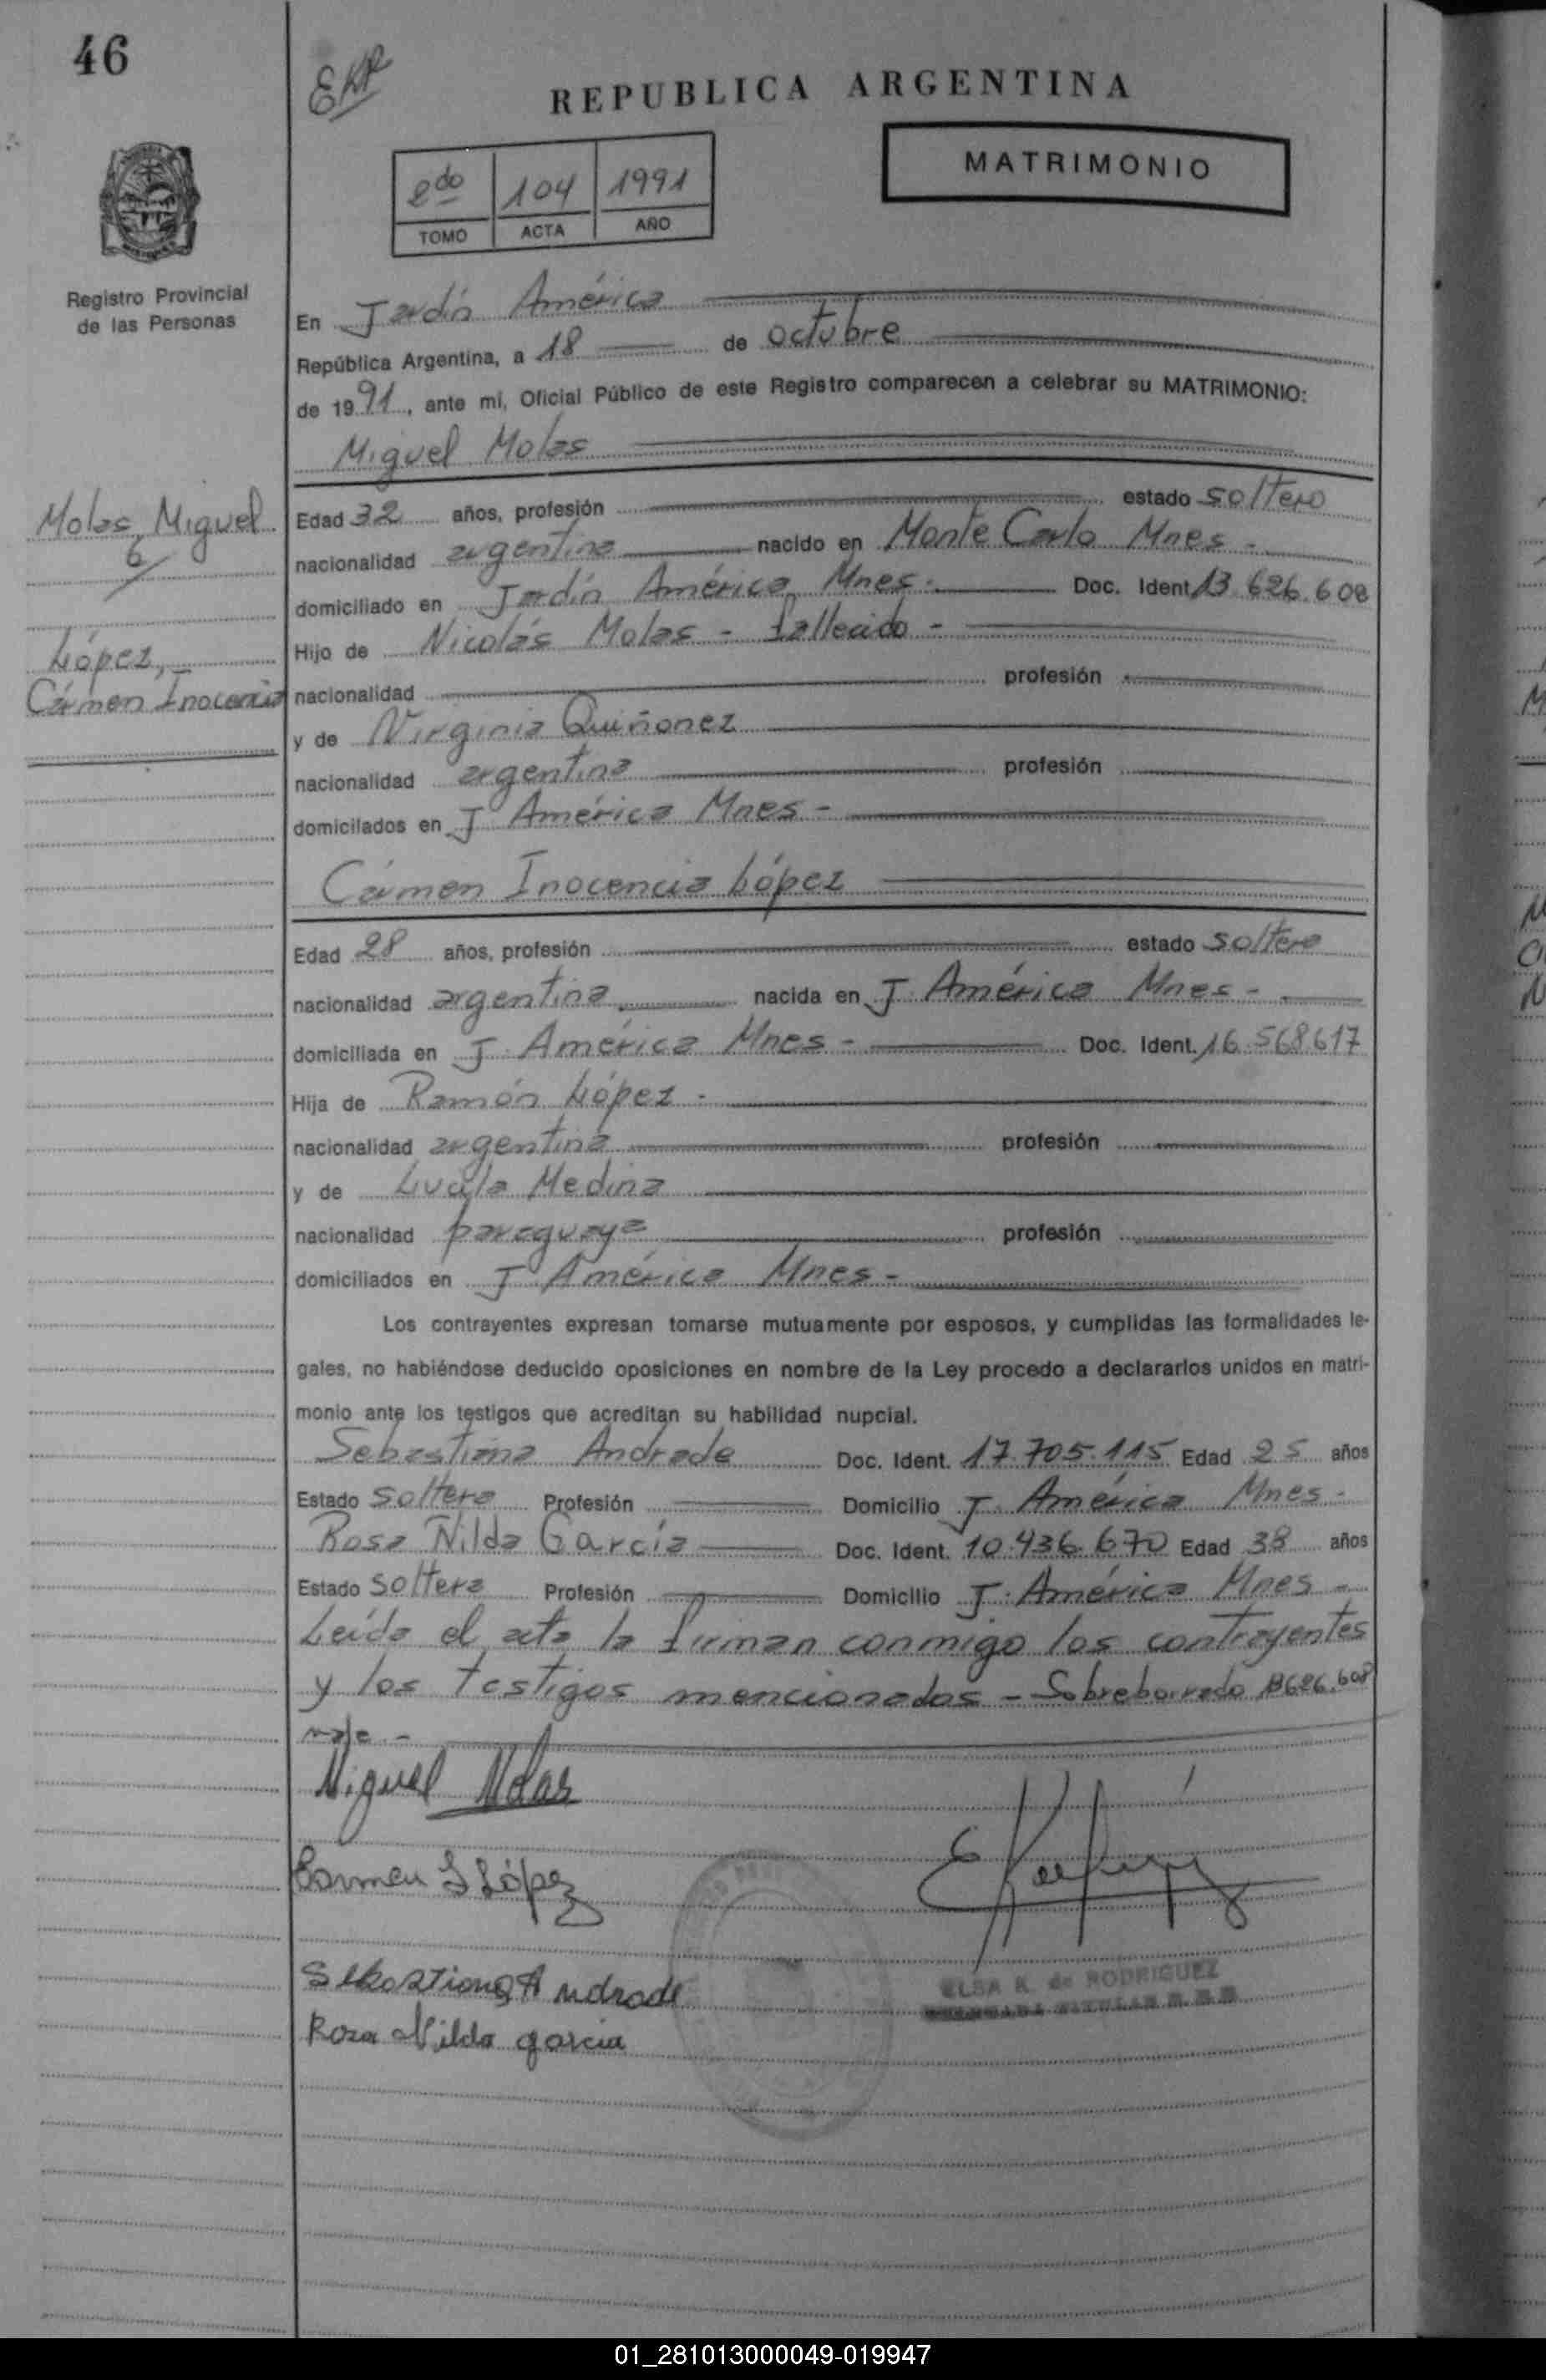 46
EKR
REPUBLICA ARGENTINA
MATRIMONIO
2do 104 1991
TOMO ACTA AÑO
Registro Provincial
de las Personas
En Jardín América
República Argentina, a 18 de octubre
de 1991, ante mi, Oficial Público de este Registro comparecen a celebrar su MATRIMONIO:
Miguel Molas
Molas, Miguel
López,
Cármen Inocencia
Edad 32 años, profesión estado soltero
nacionalidad argentina nacido en Monte Carlo Mnes -
domiciliado en Jardín América, Mnes. Doc. Ident 13.626.608
Hijo de Nicolás Molas - fallecido -
nacionalidad profesión
y de Virginia Quiñonez
nacionalidad argentina profesión
domicilados en J América Mnes -
Cármen Inocencia López
Edad 28 años, profesión estado soltera
nacionalidad argentina nacida en J. América Mnes -
domiciliada en J. América Mnes - Doc. Ident. 16.568.617
Hija de Ramón López -
nacionalidad argentina profesión
y de Lucila Medina
nacionalidad paraguaya profesión
domiciliados en J América Mnes -
Los contrayentes expresan tomarse mutuamente por esposos, y cumplidas las formalidades le-
gales, no habiéndose deducido oposiciones en nombre de la Ley procedo a declararlos unidos en matri-
monio ante los testigos que acreditan su habilidad nupcial.
Sebastiana Andrade Doc. Ident. 17.705.115 Edad 25 años
Estado soltera Profesión Domicilio J. América Mnes -
Rosa Nilda García Doc. Ident. 10.436.670 Edad 38 años
Estado soltera Profesión Domicilio J. América Mnes -
Leída el acta la firman conmigo los contrayentes
y los testigos mencionados - Sobreborrado 13626.608
vale -
Miguel Molas
Carmen I López
Sebastiana Andrade
Rosa Nilda garcia
ELSA K. de RODRIGUEZ
01_281013000049-019947